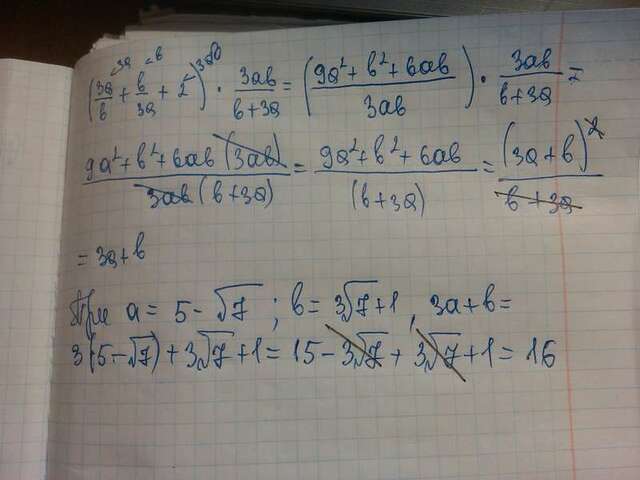 (3a/b ⁻³ᵃ + b/3a ⁻ᵇ + 2 ⁻³ᵃᵇ) · 3ab/(b+3a) = ((9a²+b²+6ab)/3ab) · 3ab/(b+3a) =
(9a²+b²+6ab (3ab))/(3ab (b+3a)) = (9a²+b²+6ab)/(b+3a) = (3a+b)²/(b+3a)
= 3a+b
При a = 5-√7 ; b = 3√7+1 , 3a+b =
3(5-√7)+3√7+1 = 15-3√7+3√7+1 = 16